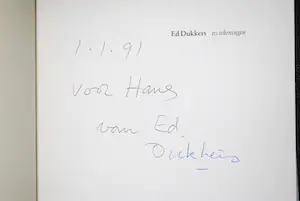 Ed Dukkers 10 tekeningen
1.1.91
voor Hans
van Ed.
Duckheis